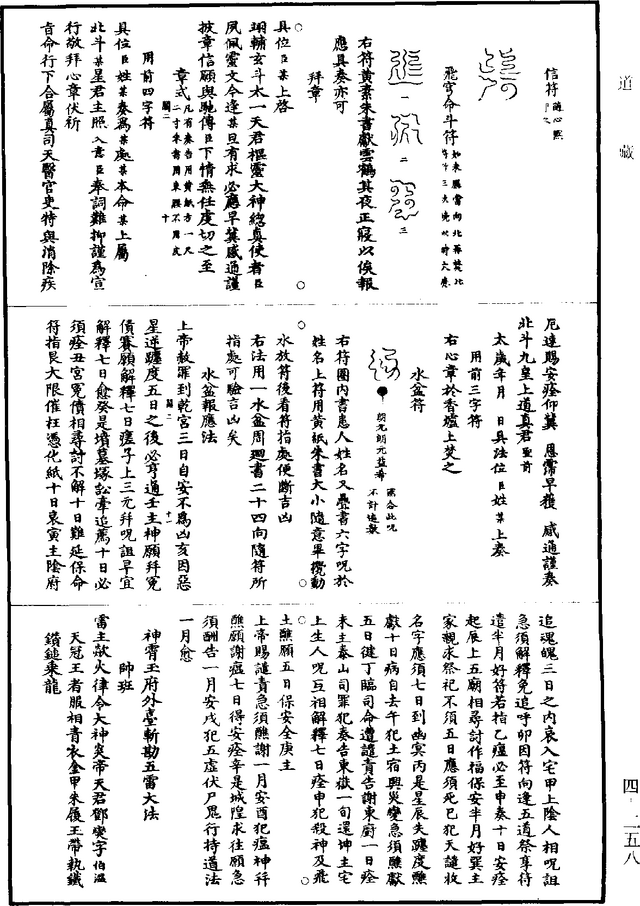 道藏
信符
飛穹命斗符
一 二 三
右符黃素朱書獻雲鶴其夜正寢以俟報
應具奏亦可
拜章
具位臣某上啓
翊輔玄斗太一天君樞靈大神總真使者臣
夙佩靈文今逢某且有求必應早冀感通謹
披章信願與馳傳臣下情無任虔切之至
章式
用前四字符
具位臣姓某奏為某處某本命某上屬
北斗某星君主照入意臣奉詞難抑謹為宣
行敬拜心章伏祈
音命行下合屬真司天醫官吏特與消除疾
厄達賜安痊仰冀 恩霈早獲 感通謹奏
北斗九皇上道真君聖前
太歲年月 日具法位臣姓某上奏
用前三字符
右心章於香爐上焚之
水盆符
右符圈內書患人姓名又疊書六字呪於
姓名上符用黃紙朱書大小隨意畢攪動
水放符後看符指處便斷吉凶
右法用一水盆周迴書二十四向隨符所
指處可驗吉凶矣
水盆報應法
上帝赦罪到乾宮三日自安不為凶亥因惡
星逆躔度五日之後必亨通壬主神願拜冤
債賽願解釋七日痊子上三元拜呪詛早宜
解釋七日愈癸是墳墓塚訟牽追薦十日必
須痊丑宮冤債相尋討不解十日難延保命
符指艮大限催枉憑化紙十日衰寅主陰府
追魂魄三日之內哀入宅甲上陰人相呪詛
急須解釋免追呼卯因符向逢五道祭享符
遣半月好符若指乙瘟必至申奏十日安痊
起辰上五廟相尋討作福保安半月好巽主
家親求祭祀不須五日應須死巳犯天譴收
名字應須七日到幽冥丙是星辰失躔度醮
獻十日病自去午犯土宿興災變急須醮獻
五日健丁臨司命遭譴責告謝東廚一日痊
未主泰山司罪犯奏告東嶽一旬還坤主宅
上生人呪互相解釋七日痊申犯殺神及飛
土醮願五日保安全庚主
上帝賜譴責急須醮謝一月安酉犯瘟神幷
醮願謝瘟七日得安痊辛是城隍求往願急
須酬告一月安戌犯五虛伏尸鬼行持道法
一月愈
神霄玉府外臺斬勘五雷大法
帥班
雷主歘火律令大神炎帝天君鄧燮字伯溫
天冠王者服相青衣金甲朱履玉帶執鐵
鑽鎚乘龍
四·二五八